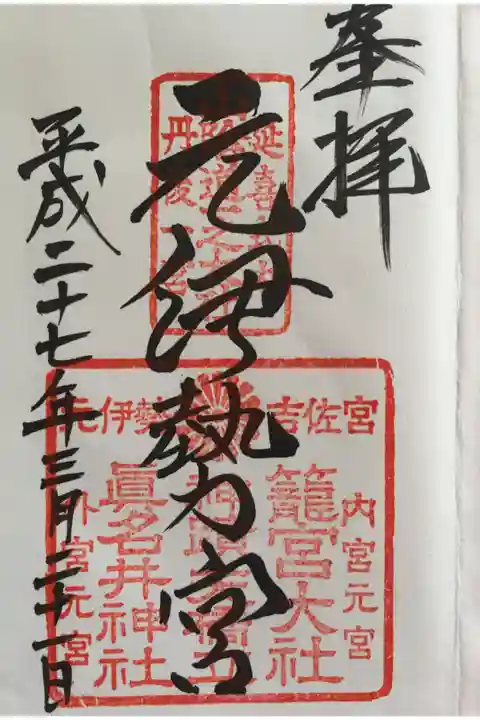 奉拝
元伊勢宮
平成二十七年三月二十一日
延喜式内
丹後一宮
吉佐宮
元伊勢
内宮元宮
籠宮大社
眞名井神社
外宮元宮